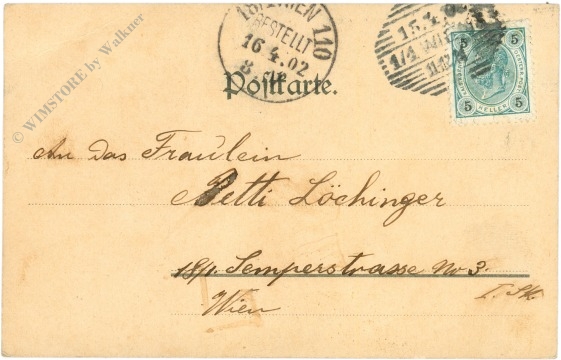 © WIMSTORE by Walkner
18/1 WIEN 110
BESTELLT
16.4.02
15.4
1/1 WIEN
5 5
5 HELLER 5
Postkarte.
An das Fräulein
Betti Löchinger
18/1. Semperstrasse No 3.
I. St.
Wien